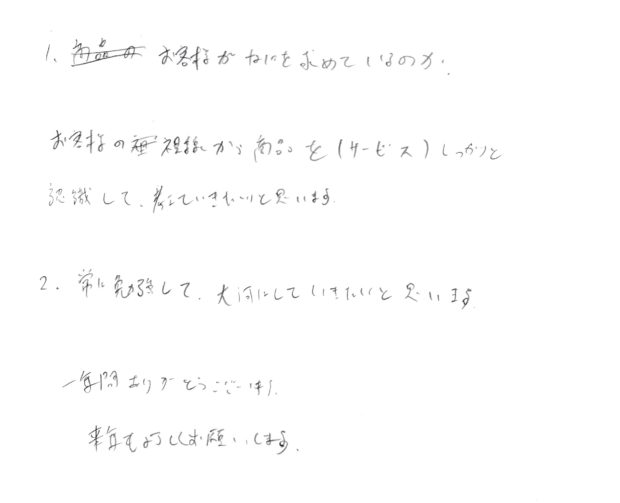 1. 商品の お客様がなにを求めているのか.
お客様の視線から商品を(サービス)しっかりと
認識して、考えていきたいと思います.
2. 常に勉強して、大河にしていきたいと思います.
一年間ありがとうございました.
来年もよろしくお願いします.